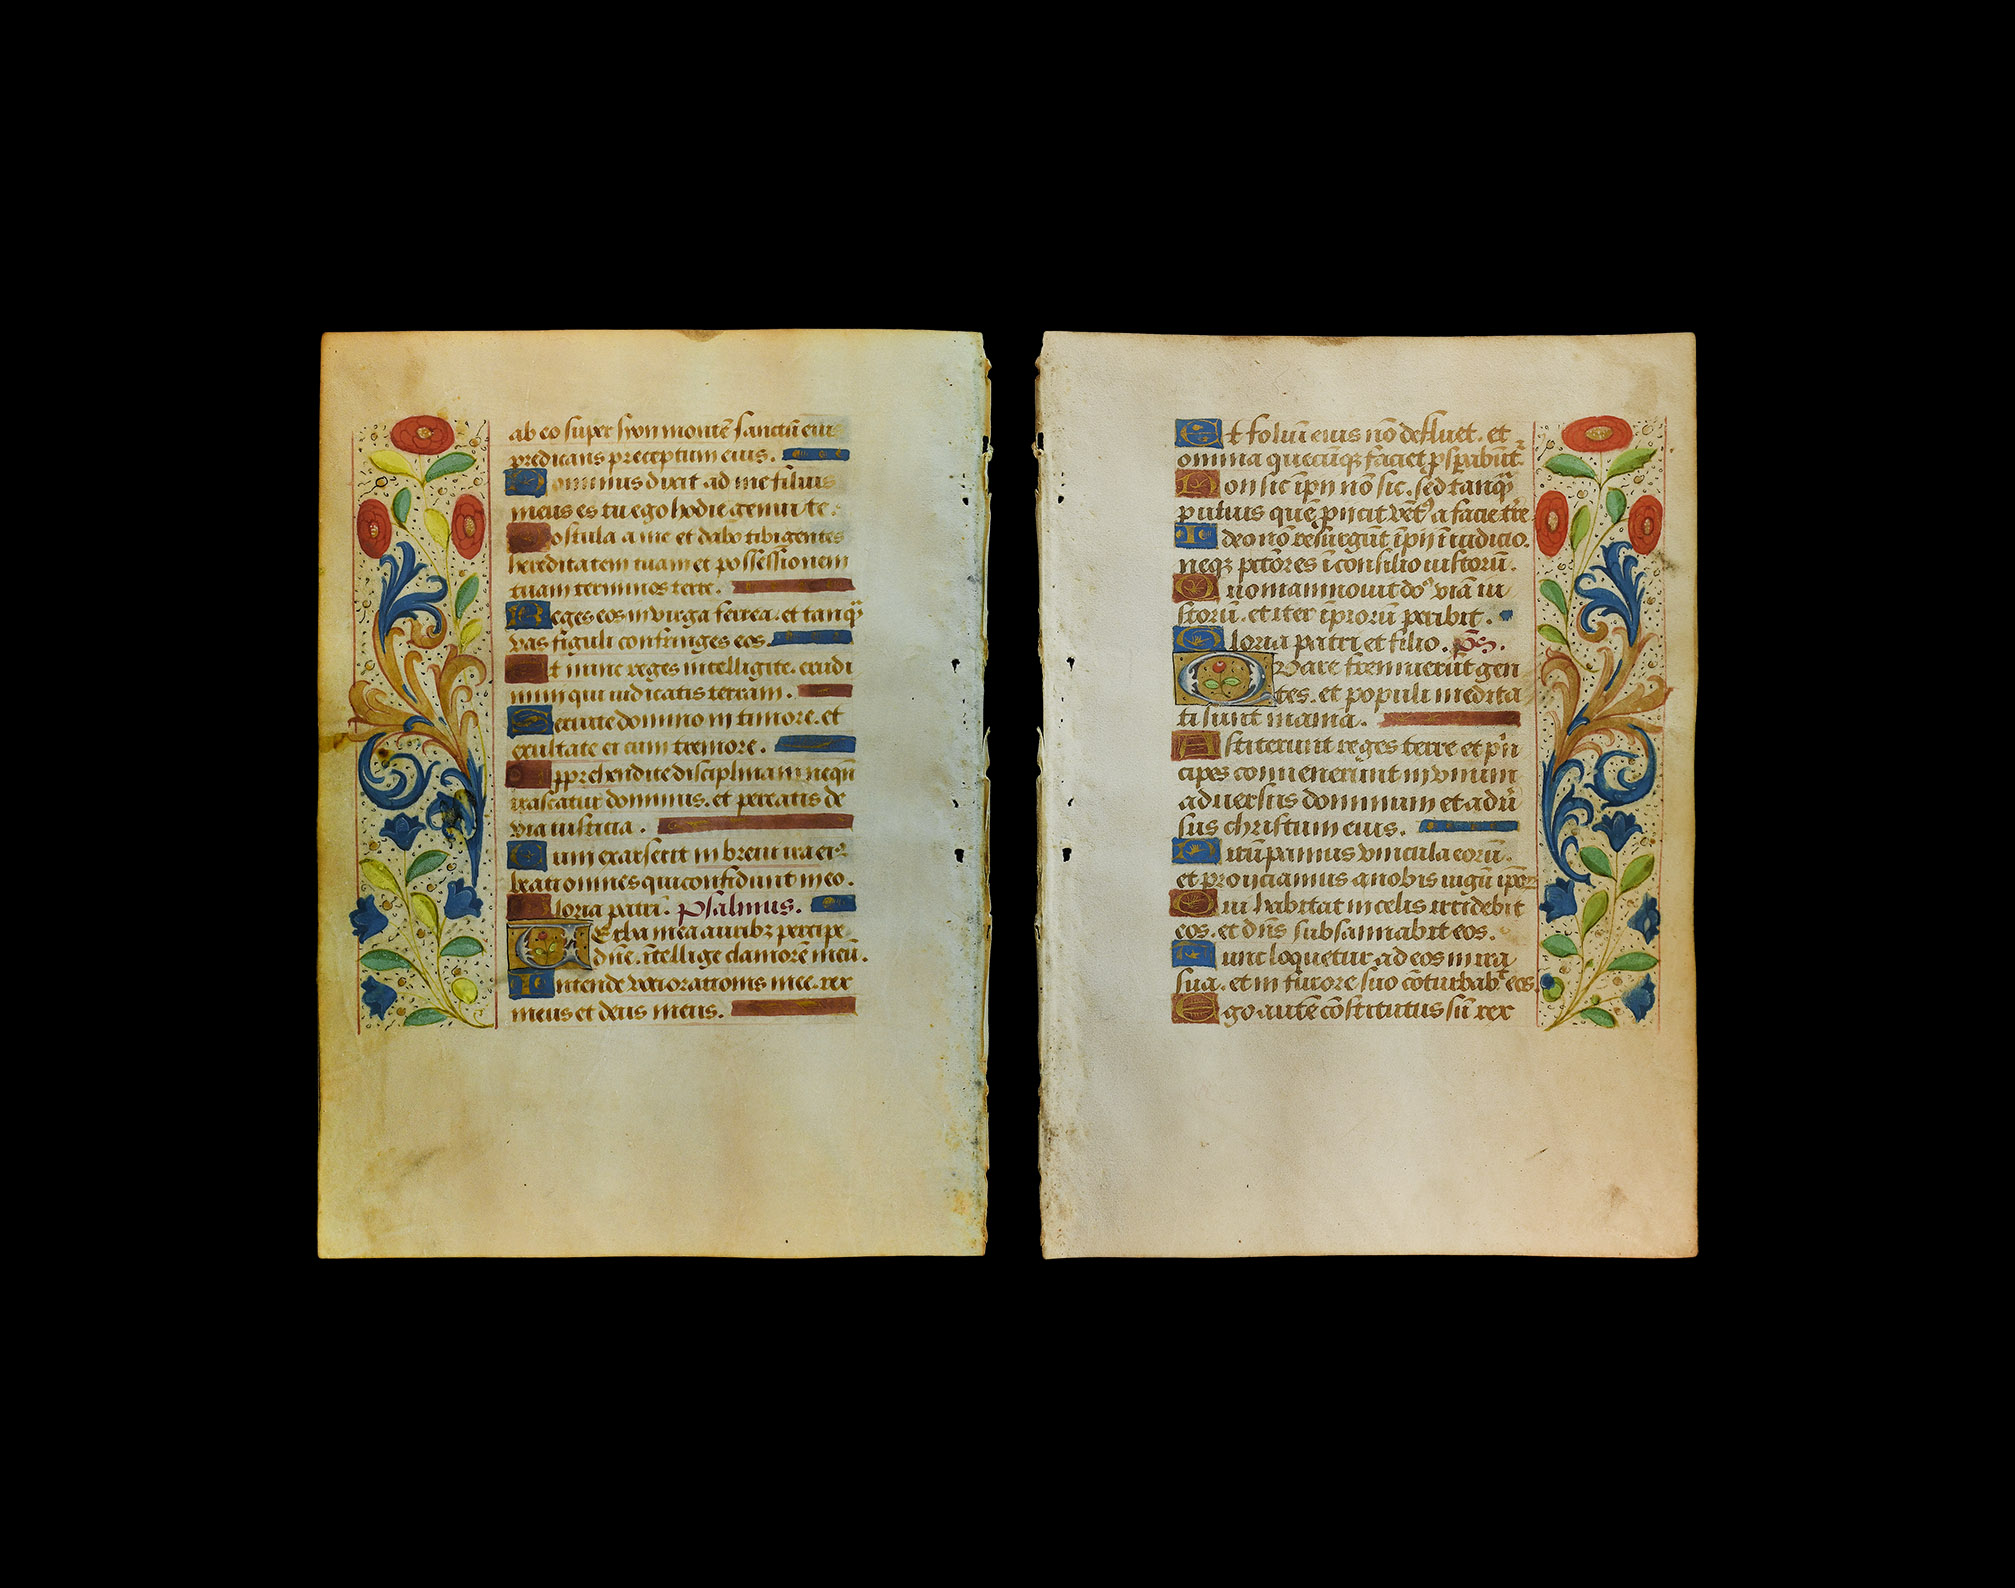 ab eo super syon montē sanctū eius
predicans preceptum eius.
Dominus dixit ad me filius
meus es tu ego hodie genui te.
Postula a me et dabo tibi gentes
hereditatem tuam et possessionem
tuam terminos terre.
Reges eos in virga ferrea. et tanqᷓ
vas figuli confringes eos.
Et nunc reges intelligite. erudi
mini qui iudicatis terram.
Seruite domino in timore. et
exultate ei cum tremore.
Apprehendite disciplinam nequā
irascatur dominus. et pereatis de
via iusticia.
Cum exarserit in breui ira eiꝰ
beati omnes qui confidunt in eo.
Gloria patri. Psalmus.
Verba mea auribꝫ percipe
dn̄e. ītellige clamorē meū.
Intende voci orationis mee. rex
meus et deus meus.
Et foliū eius nō defluet. et
omnia quecūqꝫ faciet ꝓsꝑabūt.
Non sic īpij nō sic. sed tanqᷓ
puluis quē ꝓijcit vētꝰ a facie tr̄e
Ideo nō resurgūt īpij ī iudicio.
neqꝫ pctōres ī consilio iustorū.
Quoniam nouit dōs viā iu
storū. et iter īpiorū peribit.
Gloria patri et filio. ps̄.
Quare fremuerūt gen
tes. et populi medita
ti sunt inania.
Astiterunt reges terre et pͥn
cipes conuenerunt in vnum
aduersus dominum et adū
sus christum eius.
Dirūpamus vincula eorū.
et proijciamus a nobis iugū ipoꝝ
Qui habitat in celis irridebit
eos. et dn̄s subsannabit eos.
Tunc loquetur ad eos in ira
sua. et in furore suo cōturbabᵗ eos.
Ego autē cōstitutus sū rex